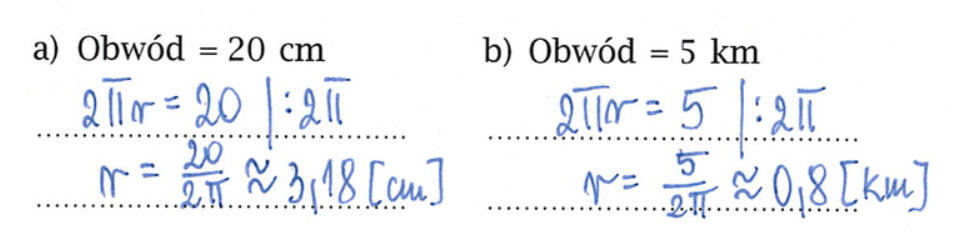 a) Obwód = 20 cm
2πr = 20 |:2π
r = 20/2π ≈ 3,18 [cm]
b) Obwód = 5 km
2πr = 5 |:2π
r = 5/2π ≈ 0,8 [km]